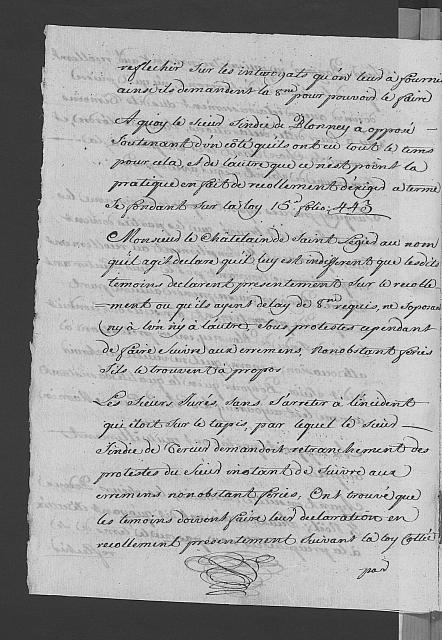 reflechir sur les interogats qu'on leur a fournis
ainsi ils demandent la 8.ne pour pouvoir le faire
A quoy le sieur Sindic de Plonney a opposé
Soutenant d'un côté qu'ils ont eu tout le tems
pour cela, et de l'autre que ce n'est point la
pratique en fait de recollement d'exiger a terme
Se fondant sur la loy 15.e folio. 443
Monsieur le Châtelain de Saint Legier au nom
qu'il agit declare qu'il luy est indifferent que lesdits
temoins declarent presentement sur le recolle
ment ou qu'ils ayent delay de 8.ne requis, ne s'oposant
ny à l'un ny à l'autre, sous protestes cependant
de faire suivre aux erremens, nonobstant feries
s'ils le trouvent a propos
Les Sieurs Jurés, sans s'arreter à l'incident
qui étoit sur le tapis, par lequel le sieur
Sindic de demandoit retranchement des
protestes du Sieur instant de suivre aux
erremens nonobstant feries, Ont trouvé que
les temoins doivent faire leur declaration en
recollement presentement suivant la loy Cottée
par